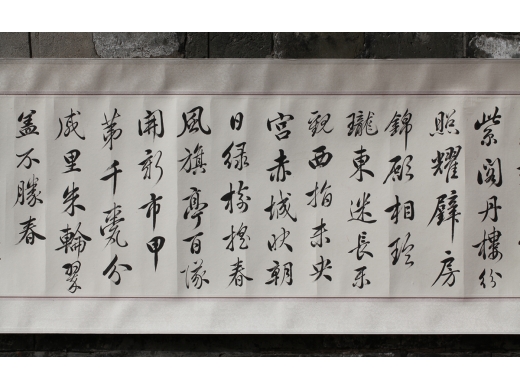 紫閣丹樓紛
照耀璧房
錦殿相玲
瓏東迷長樂
觀西指未央
宮赤城映朝
日緑榆摇春
風旗亭百隊
開新市甲
第千甍分
戚里朱輪翠
盖不勝春